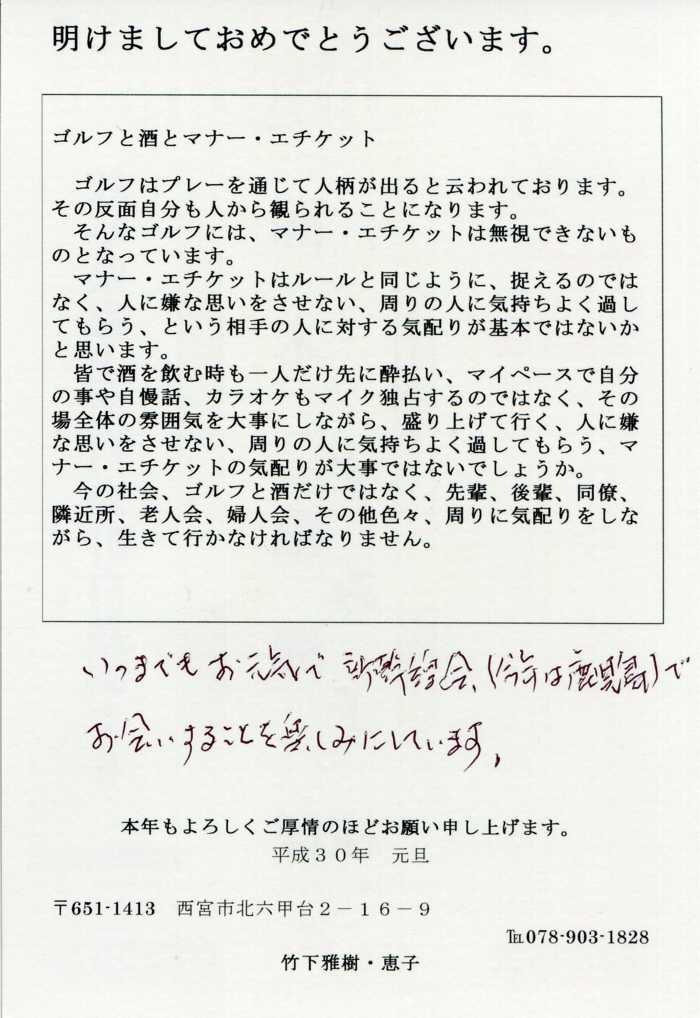 明けましておめでとうございます。
ゴルフと酒とマナー・エチケット
ゴルフはプレーを通じて人柄が出ると云われております。
その反面自分も人から観られることになります。
そんなゴルフには、マナー・エチケットは無視できないも
のとなっています。
マナー・エチケットはルールと同じように、捉えるのでは
なく、人に嫌な思いをさせない、周りの人に気持ちよく過し
てもらう、という相手の人に対する気配りが基本ではないか
と思います。
皆で酒を飲む時も一人だけ先に酔払い、マイペースで自分
の事や自慢話、カラオケもマイク独占するのではなく、その
場全体の雰囲気を大事にしながら、盛り上げて行く、人に嫌
な思いをさせない、周りの人に気持ちよく過してもらう、マ
ナー・エチケットの気配りが大事ではないでしょうか。
今の社会、ゴルフと酒だけではなく、先輩、後輩、同僚、
隣近所、老人会、婦人会、その他色々、周りに気配りをしな
がら、生きて行かなければなりません。
いつまでもお元気で 新幹線会、(今年は鹿児島)で
お会いすることを楽しみにしています、
本年もよろしくご厚情のほどお願い申し上げます。
平成30年 元旦
〒651-1413 西宮市北六甲台2-16-9
℡078-903-1828
竹下雅樹・恵子